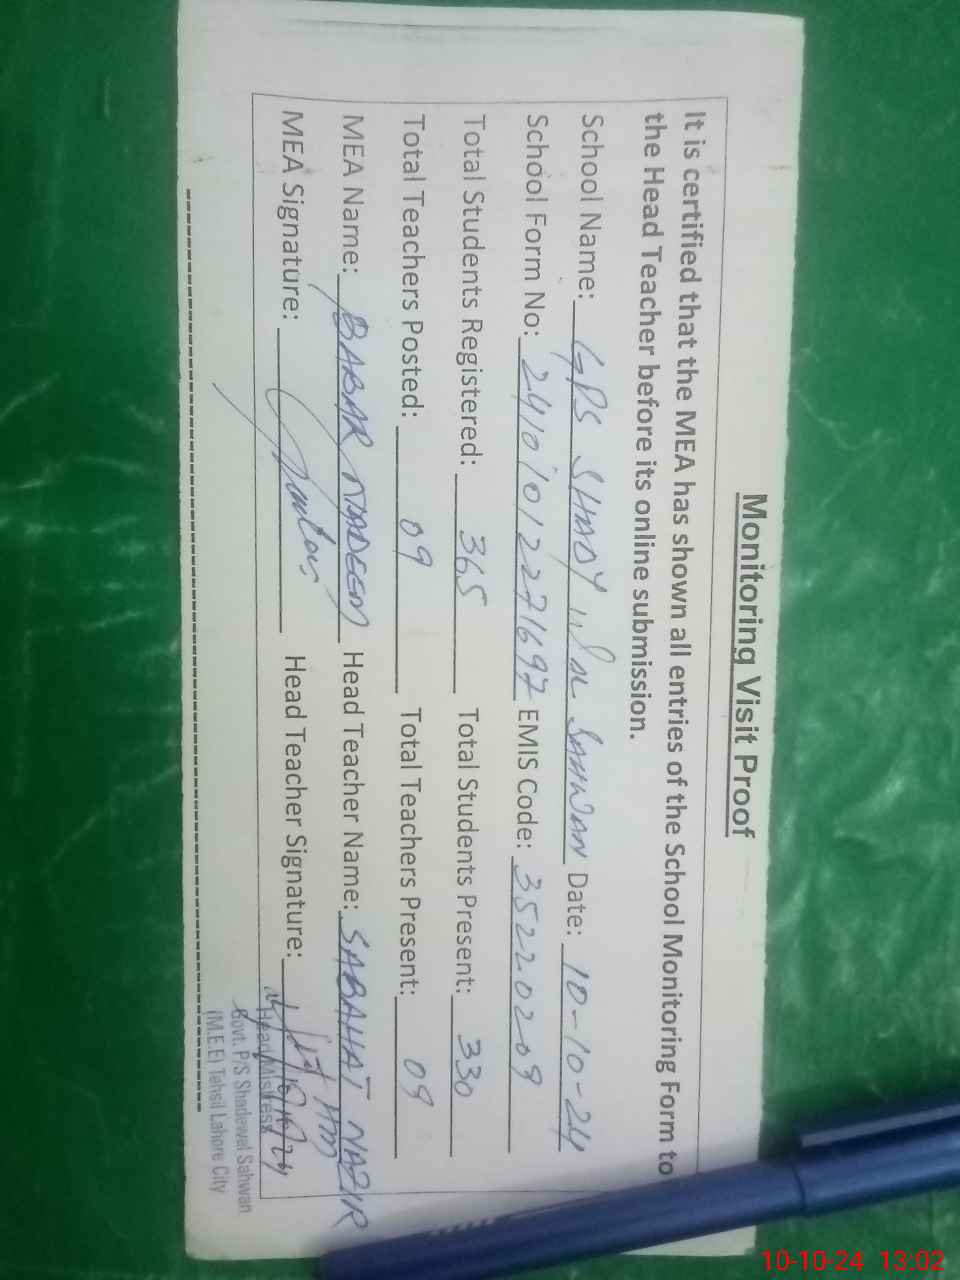 Monitoring Visit Proof
It is certified that the MEA has shown all entries of the School Monitoring Form to
the Head Teacher before its online submission.
School Name: GPS SHADY SAHWAN Date: 10-10-24
School Form No: 24101012271697 EMIS Code: 35220209
Total Students Registered: 365 Total Students Present: 330
Total Teachers Posted: 09 Total Teachers Present: 09
MEA Name: BABAR NADEEM Head Teacher Name: SABAHAT NAZIR
MEA Signature: Head Teacher Signature:
HM
10/10/24
Head Mistress
Govt. P/S Shadewel Sahwan
(M.E.E) Tehsil Lahore City
10-10-24 13:02